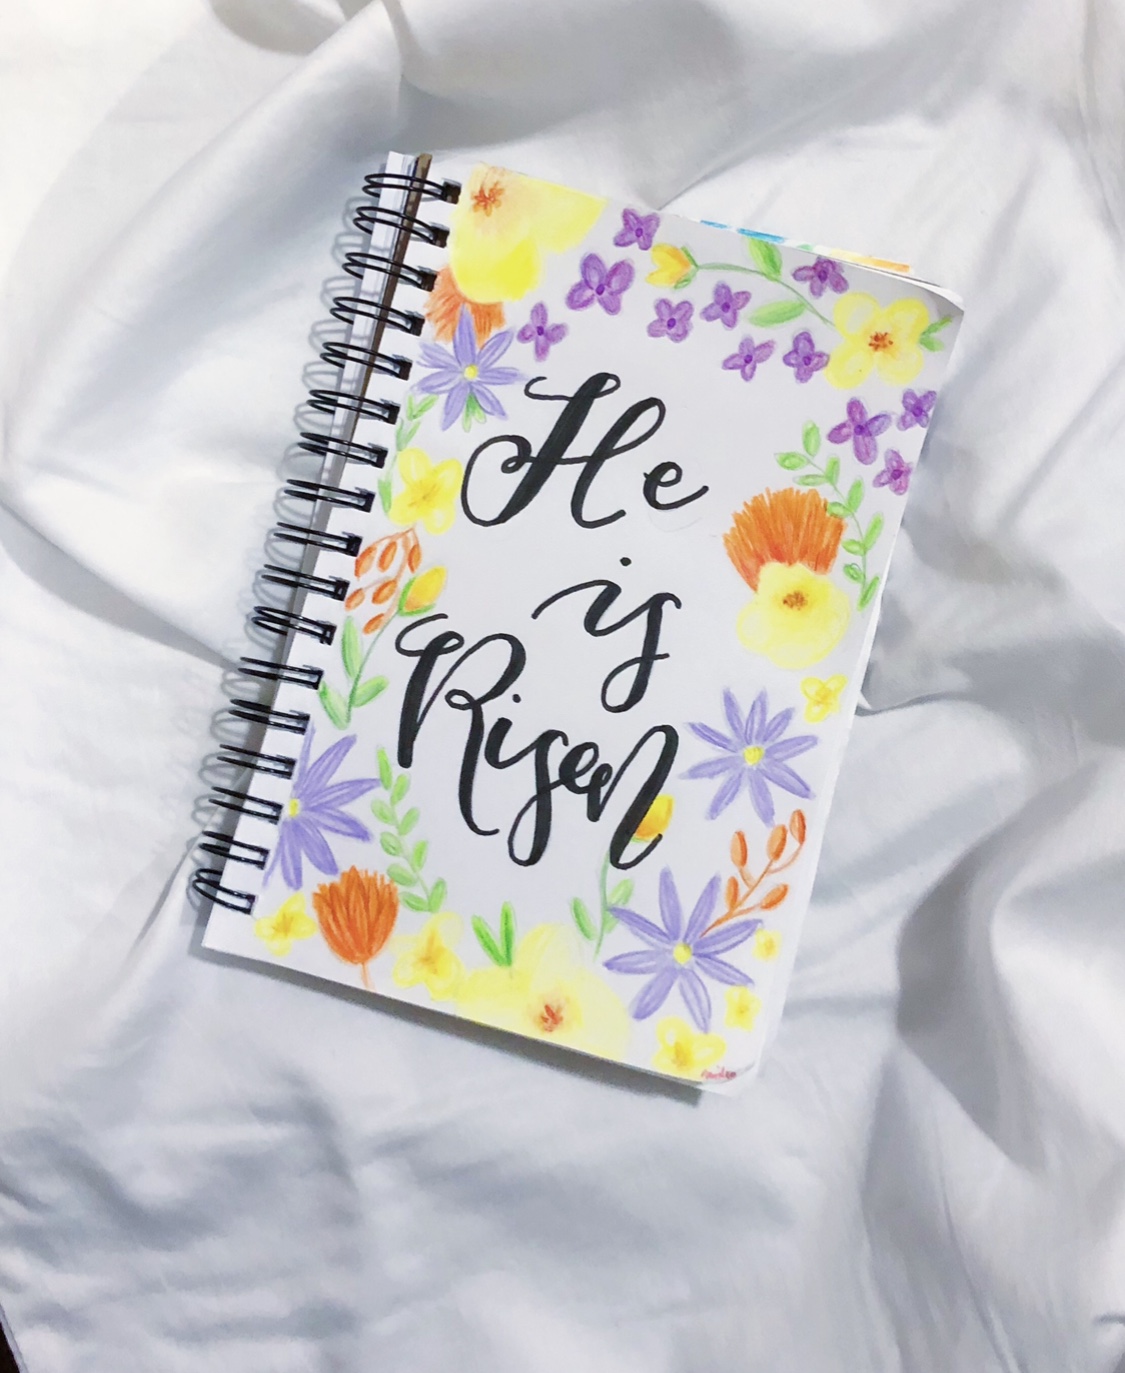 He
is
Risen